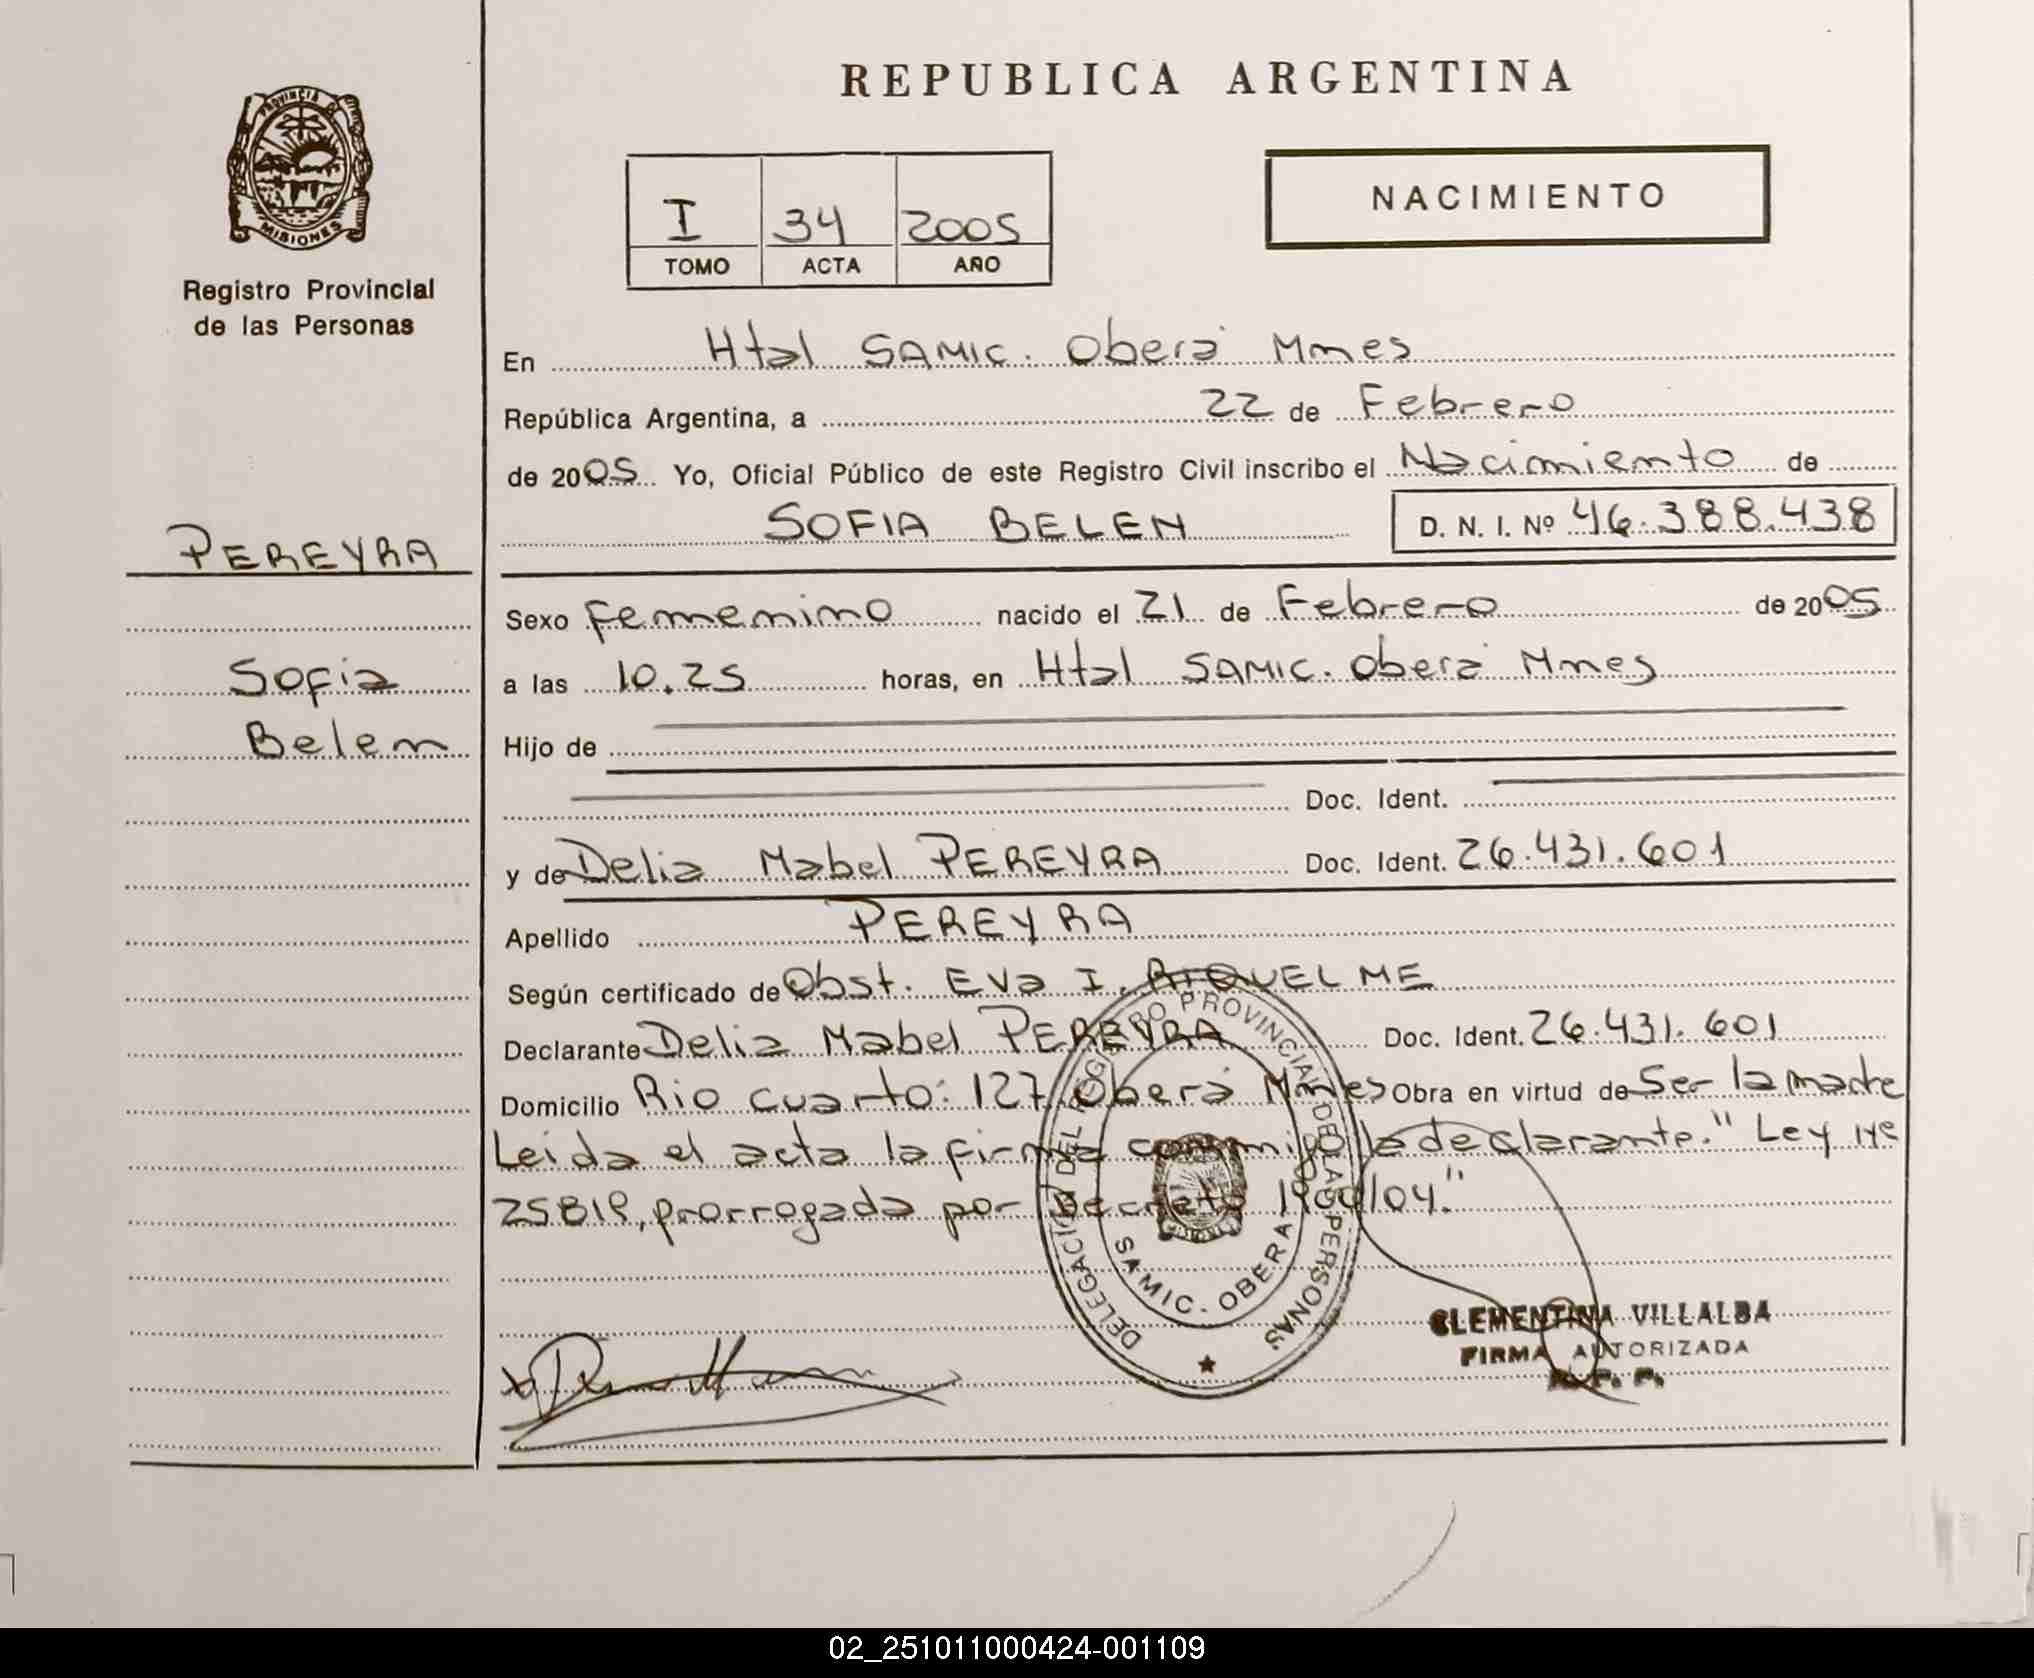 REPUBLICA ARGENTINA
PROVINCIA DE MISIONES
Registro Provincial
de las Personas
I 34 2005
TOMO ACTA AÑO
NACIMIENTO
En Htal SAMIC. Oberá Mnes
República Argentina, a 22 de Febrero
de 2005 Yo, Oficial Público de este Registro Civil inscribo el Nacimiento de
SOFIA BELEN D. N. I. Nº 46.388.438
PEREYRA
Sofia
Belen
Sexo femenino nacido el 21 de Febrero de 2005
a las 10.25 horas, en Htal SAMIC. Oberá Mnes
Hijo de
Doc. Ident.
y de Delia Mabel PEREYRA Doc. Ident. 26.431.601
Apellido PEREYRA
Según certificado de Obst. Eva I. RIQUELME
Declarante Delia Mabel PEREYRA Doc. Ident. 26.431.601
Domicilio Rio cuarto: 127 Oberá Mnes Obra en virtud de Ser la madre
Leida el acta la firma conmigo la declarante." Ley Nº
25819, prorrogada por Decreto /04."
DELEGACION DEL REGISTRO PROVINCIAL DE LAS PERSONAS
SAMIC. - OBERA
CLEMENTINA VILLALBA
FIRMA AUTORIZADA
R. P. P.
02_251011000424-001109